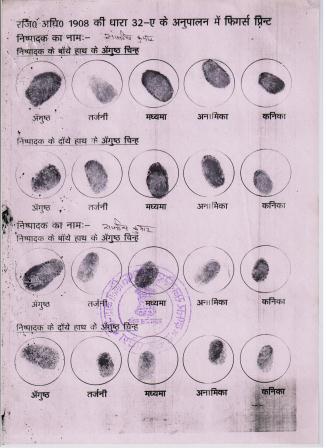 रजि० अधि० 1908 की धारा 32-ए के अनुपालन में फिंगर्स प्रिन्ट
निष्पादक का नाम:-
निष्पादक के बाँये हाथ के अँगुष्ठ चिन्ह
अँगुष्ठ तर्जनी मध्यमा अनामिका कनिका
निष्पादक के दाँये हाथ के अँगुष्ठ चिन्ह
अँगुष्ठ तर्जनी मध्यमा अनामिका कनिका
निष्पादक का नाम:-
निष्पादक के बाँये हाथ के अँगुष्ठ चिन्ह
अँगुष्ठ तर्जनी मध्यमा अनामिका कनिका
निष्पादक के दाँये हाथ के अँगुष्ठ चिन्ह
अँगुष्ठ तर्जनी मध्यमा अनामिका कनिका